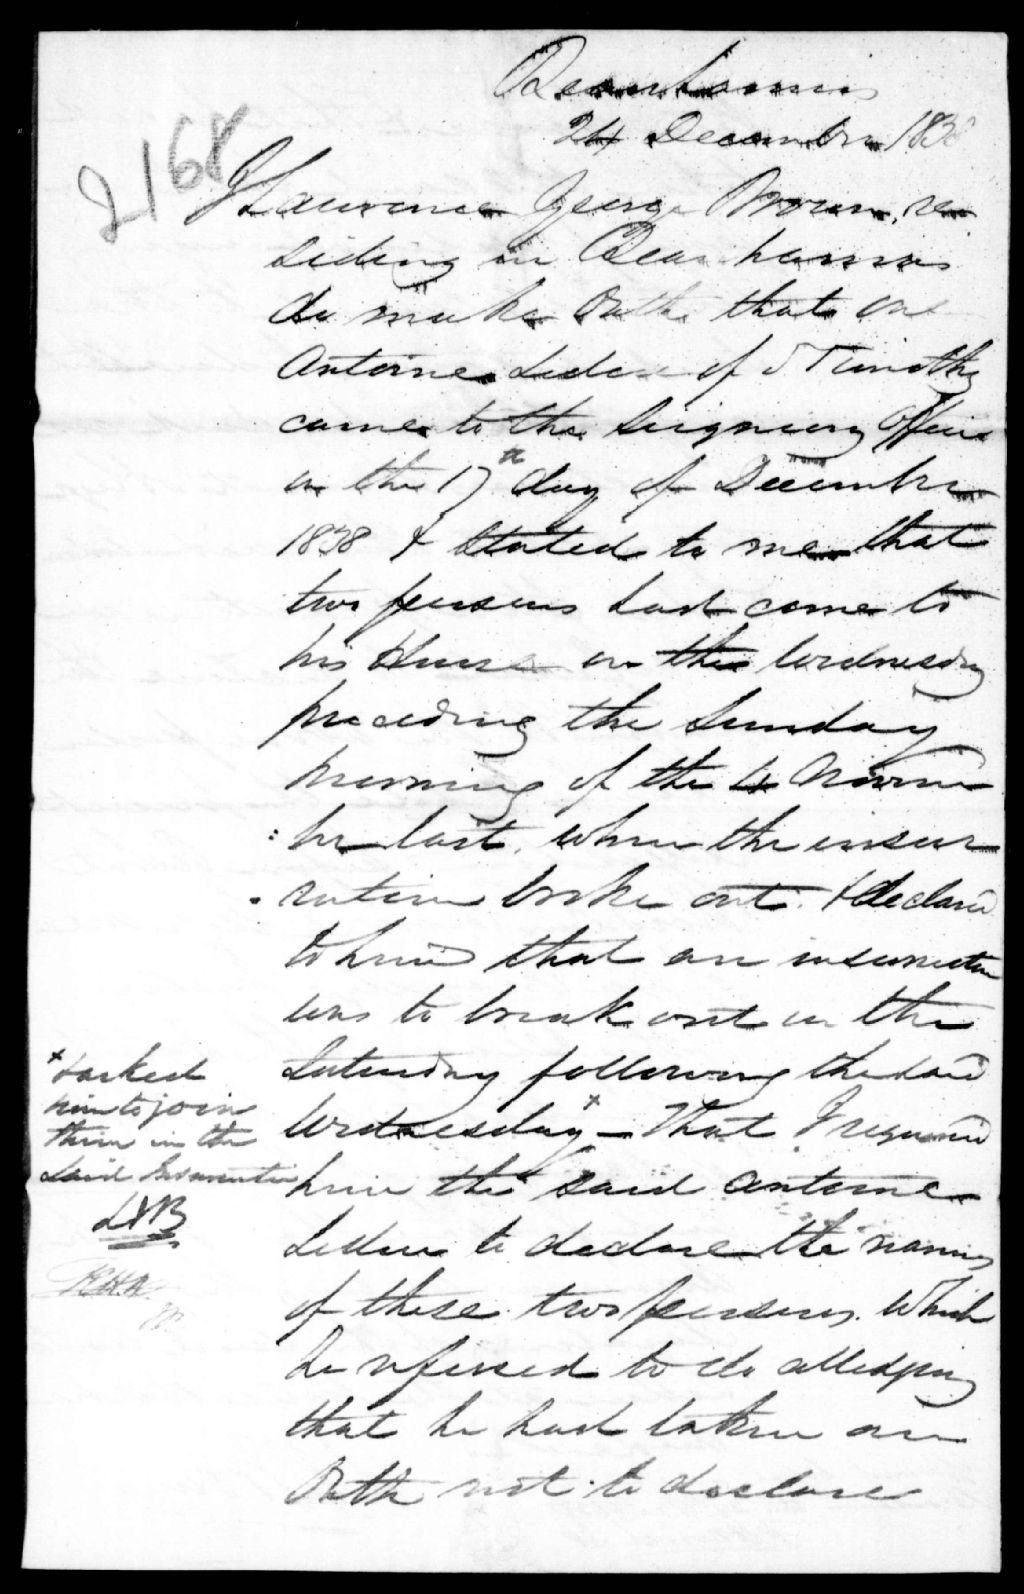 Beauharnois
24 December 1838
2168
I Laurence George Brown, re
siding in Beauharnois
do make Oath that one
Antoine Leduc of St Timothy
came to the Seigniory Office
on the 17th day of December
1838 & stated to me that
two persons had come to
his House on the Wednesday
preceding the Sunday
morning of the 4 Novem
:ber last, when the insur
rection broke out. & declared
to him that an insurrection
was to break out on the
Saturday following the said
Wednesday x – That I required
him the said Antoine
Leduc to declare the names
of these two persons. Which
he refused to do alledging
that he had taken an
Oath not to declare
x & asked
him to join
them in the
said Insurrection
LGB